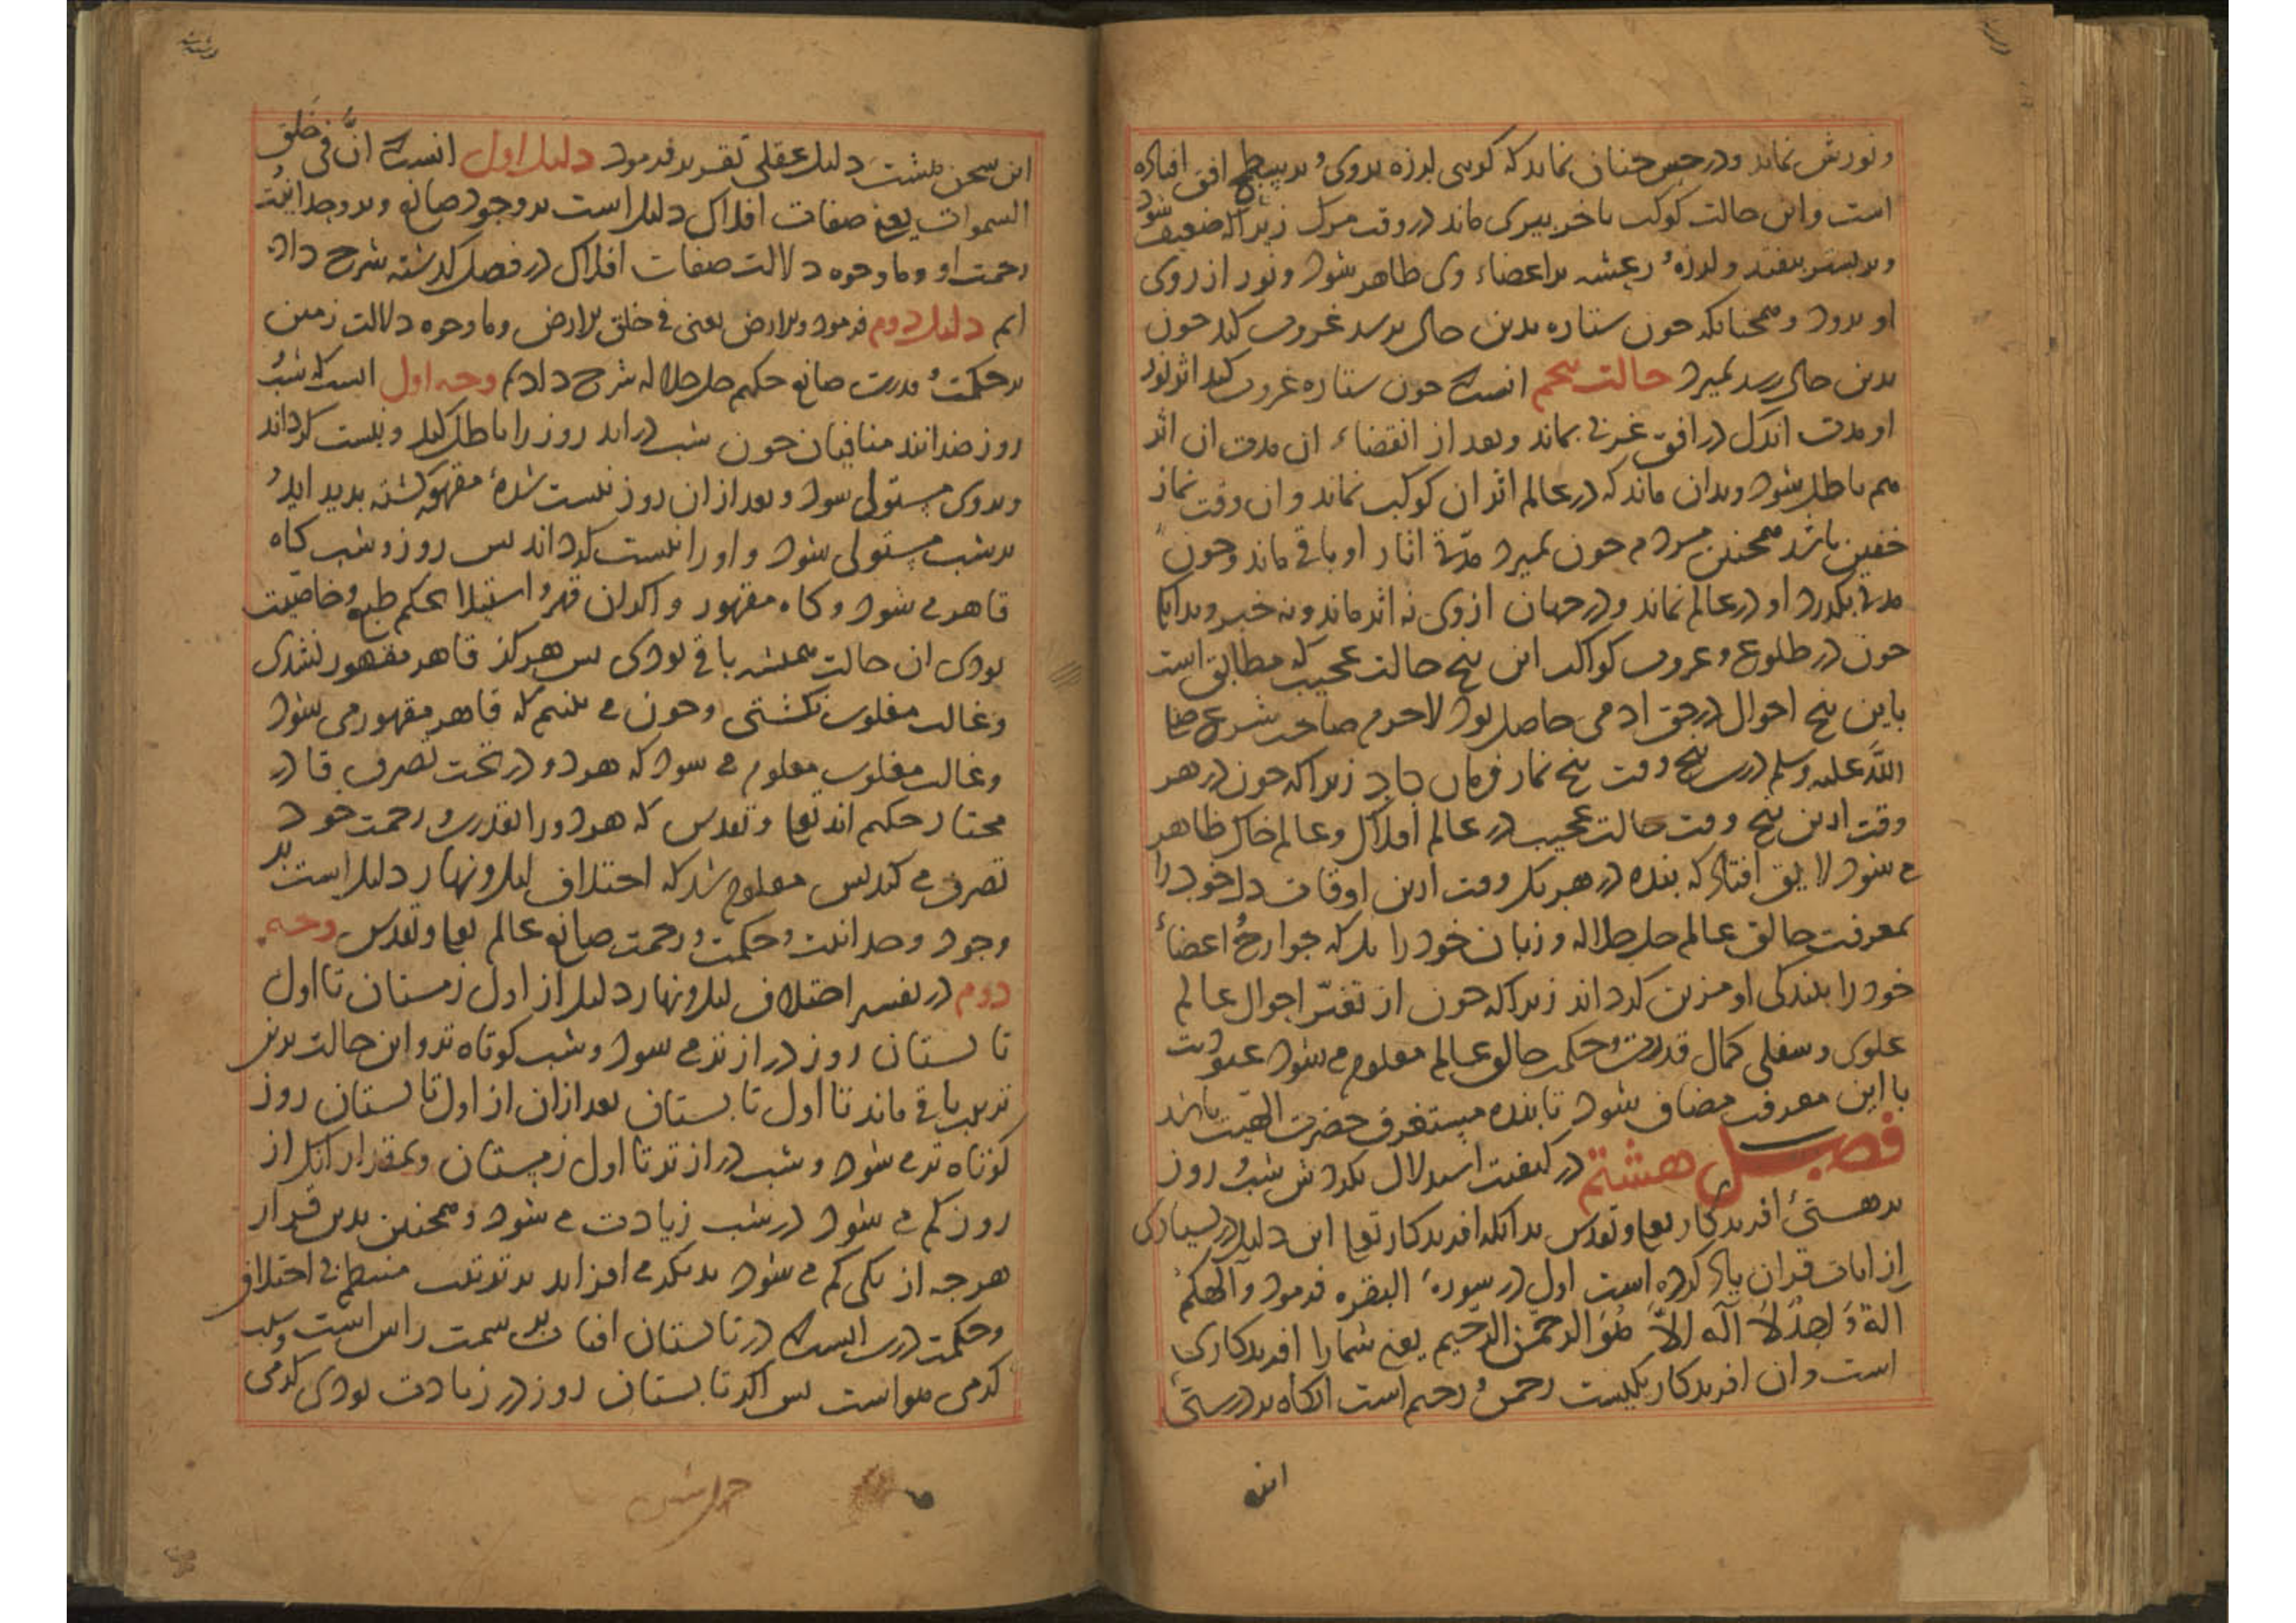 ونورش نماند ودر حس چنان نماید که کویی لرزه بروی و بر سطح افق افتاده
است و این حالت کوکب باخر پیری ماند در وقت مرک زیرا که ضعیف شود
وبر بستر بیفتد و لرزه و رعشه بر اعضاء وی ظاهر شود ونور از روی
او برود و همچنانکه چون ستاره بدین حال برسد غروب کند چون
بدین حال رسد بمیرد حالت پنجم انست که چون ستاره غروب کند اثر نور
او مدت اندک در افق غربی بماند وبعد از انقضاء ان مدت ان اثر
هم باطل شود وبدان ماند که در عالم اثر ان کوکب نماند و ان وقت نماز
خفتن باشد همچنین مردم چون بمیرد مدتی اثار او باقی ماند و چون
مدتی بکذرد او در عالم نماند ودر جهان از وی نه اثر ماند ونه خبر وبدانک
چون در طلوع و غروب کواکب این پنج حالت عجیب که مطابق است
باین پنج احوال در حق ادمی حاصل بود لاجرم صاحب شرع صلی
الله علیه وسلم درین پنج وقت پنج نماز فرمان داد زیرا که چون در هر
وقت ازین پنج وقت حالت عجیب در عالم افلاک وعالم خاک ظاهر
می شود لایق افتاد که بنده در هر یک وقت ازین اوقات دل خود را
بمعرفت خالق عالم جل جلاله و زبان خود را بل که جوارح و اعضاء
خود را ببندکی او مزین کرداند زیرا که چون از تغیّر احوال عالم
علوی و سفلی کمال قدرت و حکمت خالق عالم معلوم می شود عبودیت
با این معرفت مضاف شود تا بنده مستغرق حضرت الهیت باشد
فصل هشتم در کیفیت استدلال بکردش شب و روز
بر هستی افریدکار تعالی و تقدس بدانکه افریدکار تعالی این دلیل در بسیاری
از ایات قران یاد کرده است اول در سورة البقره فرمود وَالهکم
الهٌ وَاحِدٌ لاَ اله الاّ هُوَ الرحمٰن الرّحیم یعنی شما را افریدکاری
است و ان افریدکار یکیست رحمن و رحیم است انکاه بر درستی
این
این سخن هشت دلیل عقلی تقریر فرمود دلیل اول انست که انَّ فی خَلق
السموات یعنی صفات افلاک دلیل است بر وجود صانع وبر وحدانیت
رحمت او و ما وجوه دلالت صفات افلاک در فصل کذشته شرح داده
ایم دلیل دوم فرمود والارض یعنی فی خلق الارض وما وجوه دلالت زمین
بر حکمت و قدرت صانع حکیم جل جلاله شرح دادیم وجه اول انست که شب و
روز ضدانند منافیان چون شب در اید روز را باطل کند و نیست کرداند
وبروی مستولی شود و بعد از ان روز نیست شدهٔ مقهور کشته بدید اید و
بر شب مستولی شود و او را نیست کرداند پس روز و شب کاه
قاهر می شود و کاه مقهور و اکر ان قهر و استیلا بحکم طبع وخاصیت
بودی ان حالت همیشه باقی بودی پس هرکز قاهر مقهور نشدی
وغالب مغلوب نکشتی و چون می بینیم که قاهر مقهور می شود
و غالب مغلوب معلوم می شود که هر دو در تحت تصرف قادر
مختار حکیم اند تعالی و تقدس که هر دو را بقدرت و رحمت خود
تصرف می کند پس معلوم شد که اختلاف لیل و نهار دلیل است بر
وجود وحدانیت و حکمت و رحمت صانع عالم تعالی و تقدس وجه
دوم در تفسیر اختلاف لیل و نهار دلیل از اول زمستان تا اول
تابستان روز دراز تر می شود و شب کوتاه تر و این حالت برین
ترتیب باقی ماند تا اول تابستان بعد از ان از اول تابستان روز
کوتاه تر می شود و شب دراز تر تا اول زمستان وبمقدار انک از
روز کم می شود در شب زیادت می شود وهمچنین بدین قرار
هرچه از یکی کم می شود بدیکر می افزاید بر ترتیب منتظم بی اختلاف
وحکمت درین انست که در تابستان افتاب بر سمت راس است و سبب
کرمی هواست پس اکر تابستان روز در زیادت بودی کرمی